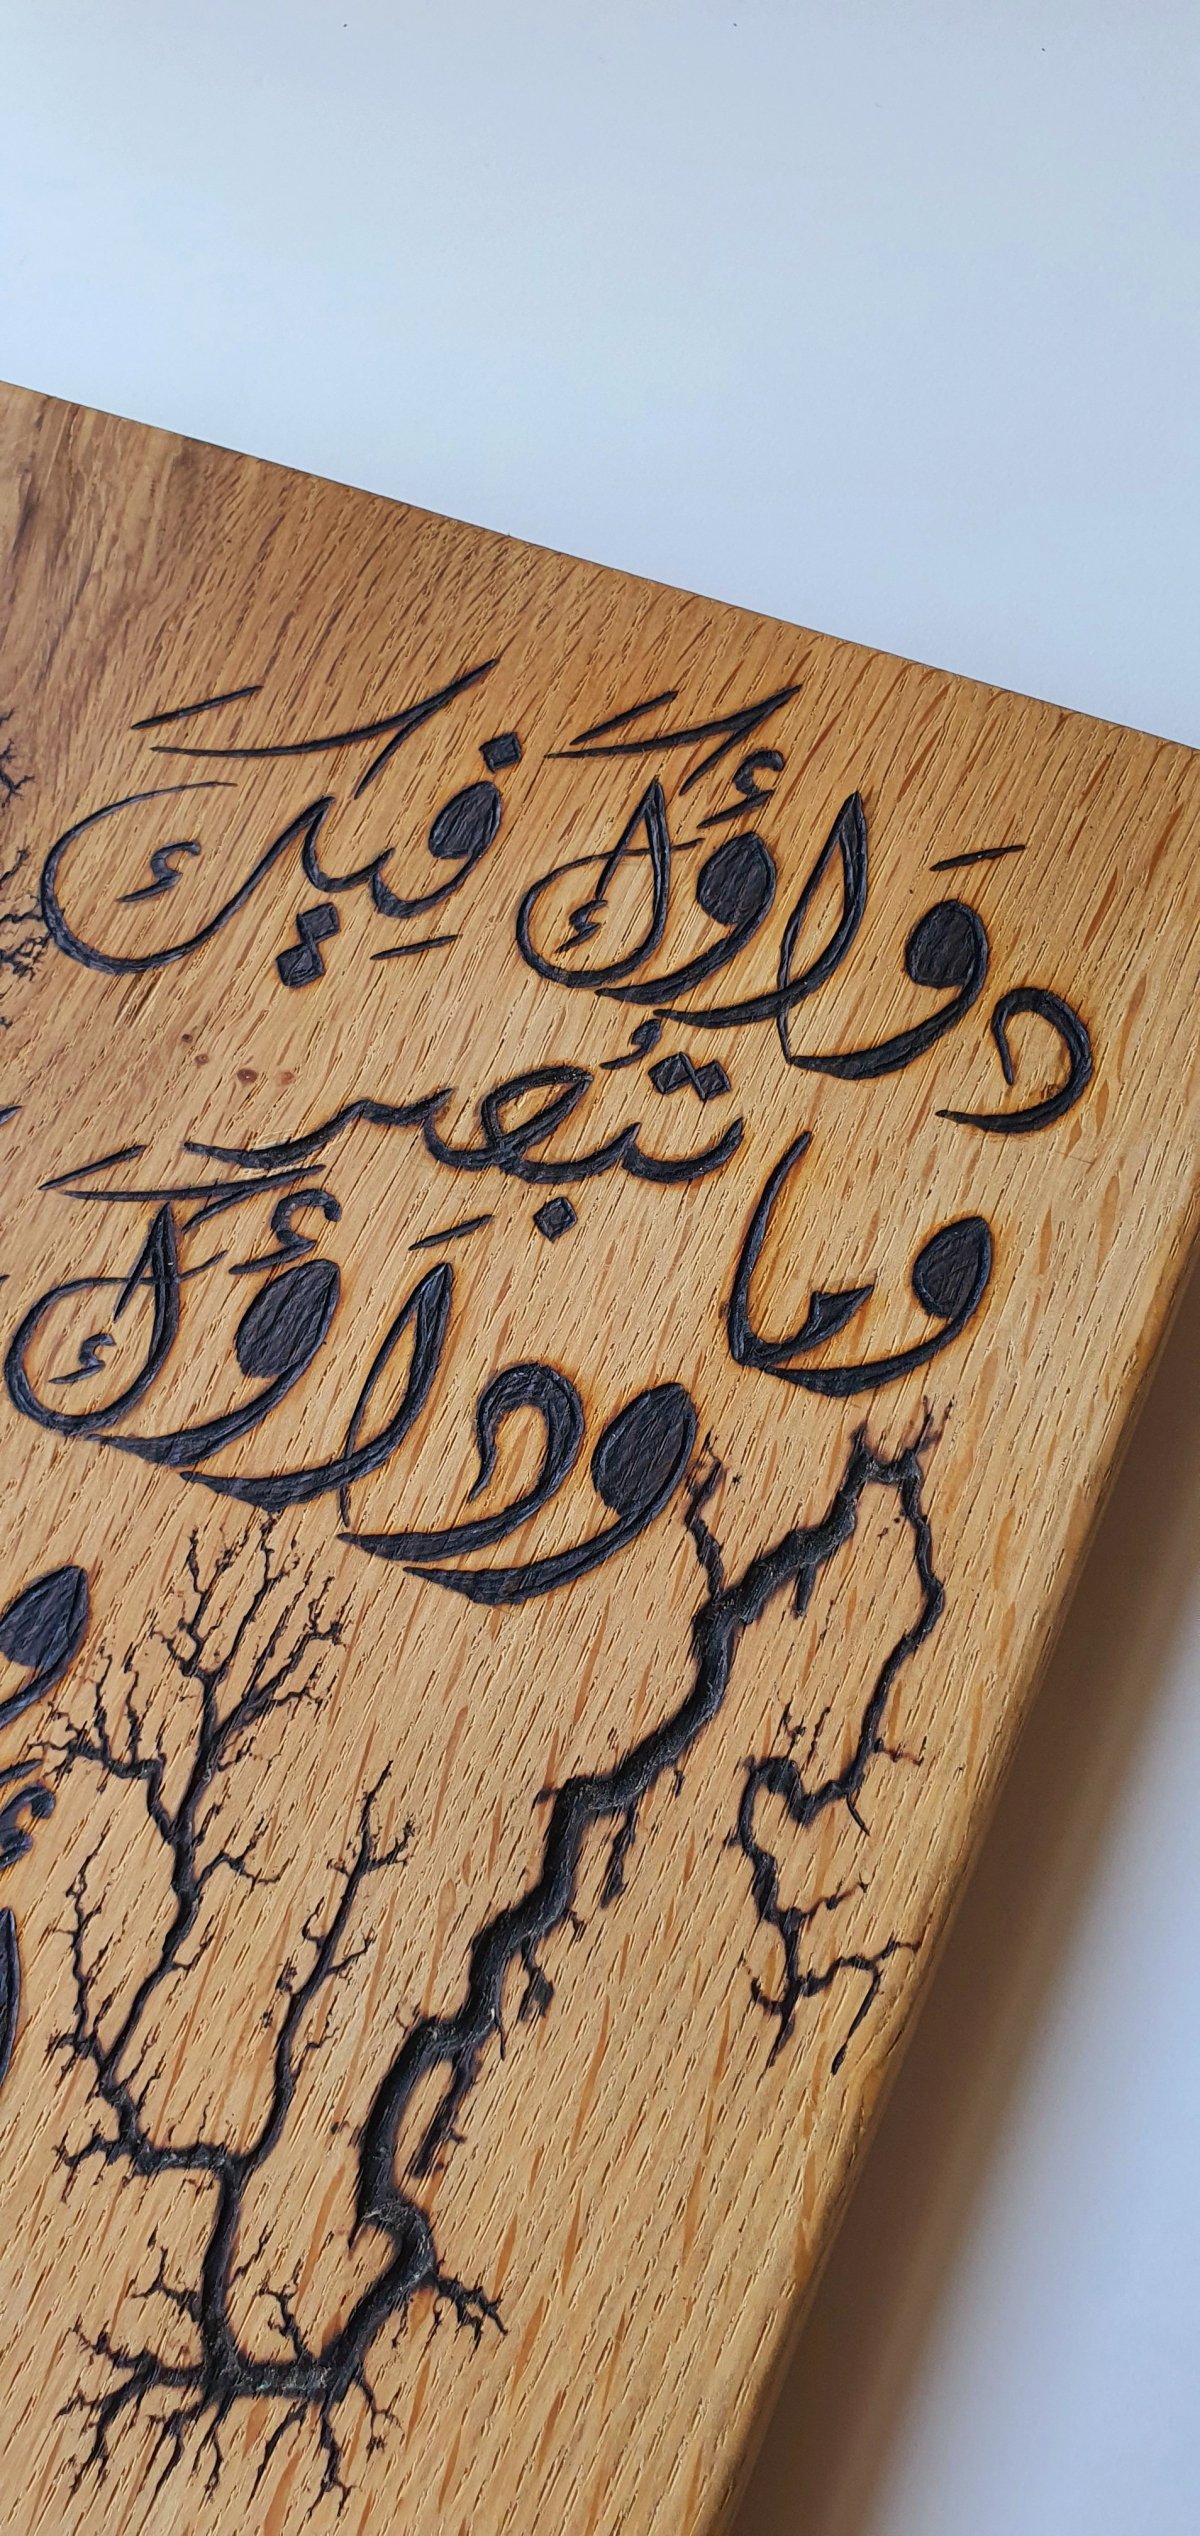 دَوَاؤُكَ فِيكَ
وما تُبصر
ودَاؤُكَ